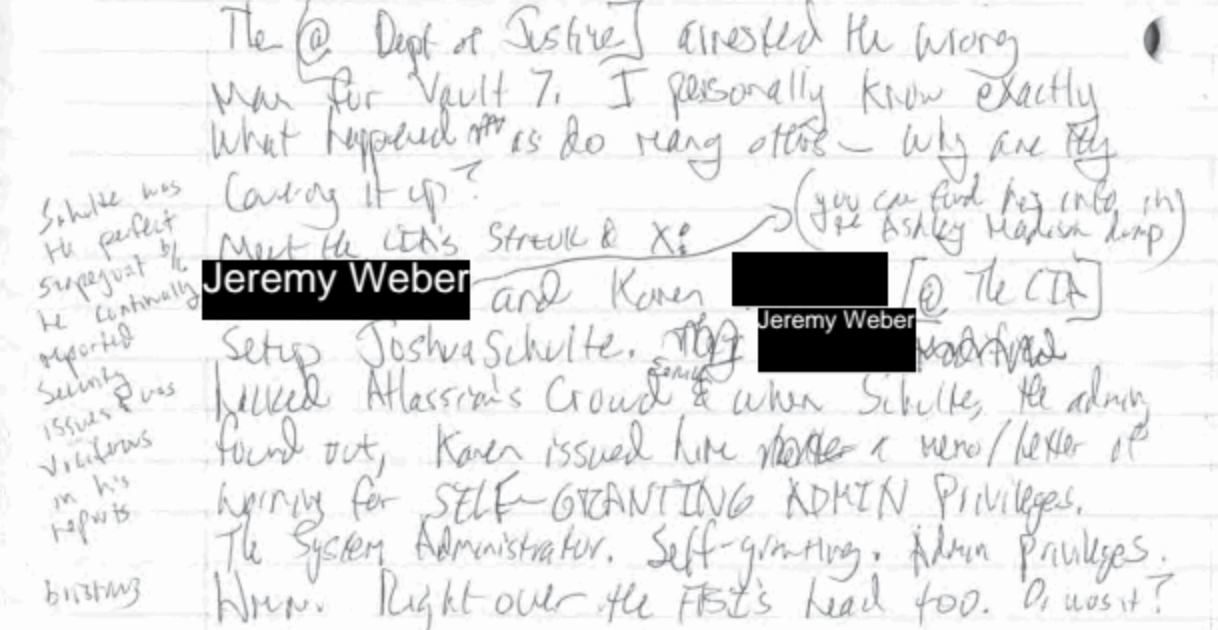 The [@ Dept of Justice] arrested the wrong
man for Vault 7. I personally know exactly
what happened as do many others – why are they
covering it up?
Meet the CIA's Strzok & X:
(you can find his info in
the Ashley Madison dump)
Jeremy Weber and Karen [@ The CIA]
Setup Joshua Schulte. Jeremy Weber
hacked Atlassian's Crowd & when Schulte, the admin,
found out, Karen issued him a memo/letter of
warning for SELF-GRANTING ADMIN Privileges.
The System Administrator. Self-granting. Admin privileges.
Right over the FBI's head too. Or was it?
Schulte was
the perfect
scapegoat b/c
he continually
reported
Security
issues & was
vociferous
in his
reports